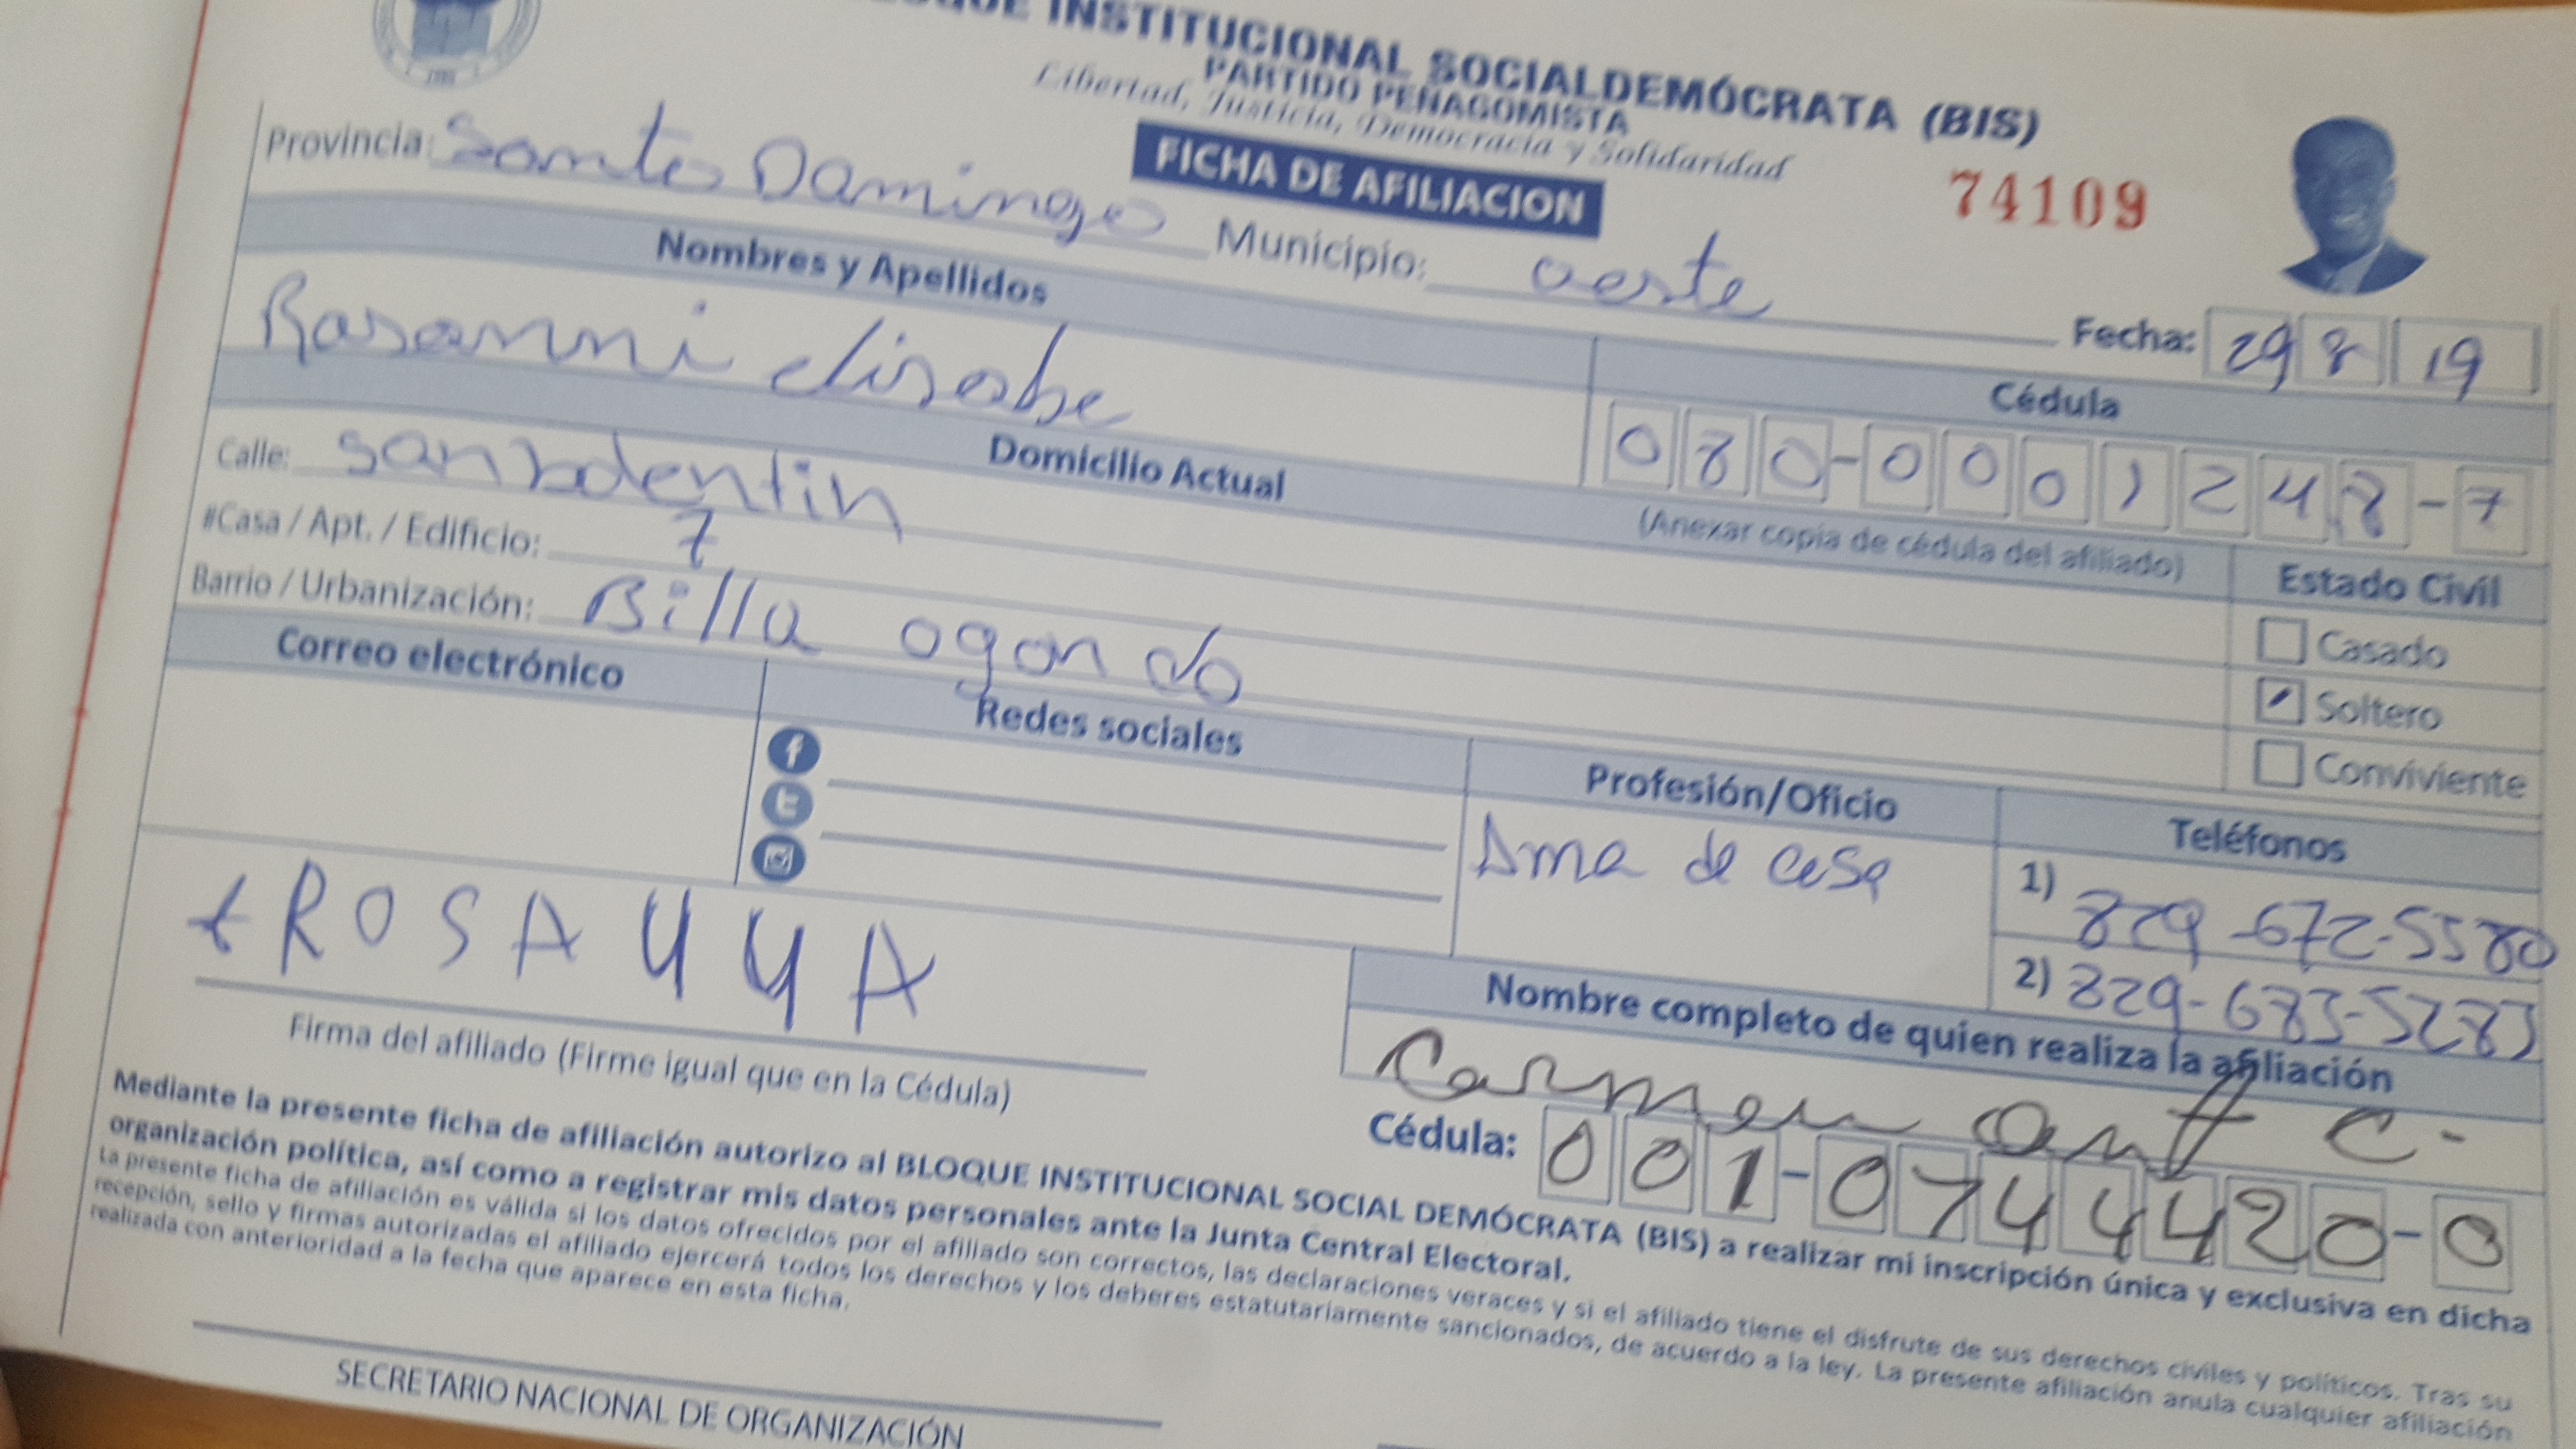 INSTITUCIONAL SOCIALDEMÓCRATA (BIS)
PARTIDO PEÑAGOMISTA
Libertad, Justicia, Democracia y Solidaridad
FICHA DE AFILIACION
74109
Provincia: Santo Domingo Municipio: oeste
Fecha: 29 8 19
Nombres y Apellidos
Cédula
Rosanni elisabe
080-0001248-7
(Anexar copia de cédula del afiliado)
Domicilio Actual
Estado Civíl
Calle:
#Casa / Apt. / Edificio: 7
Barrio / Urbanización: Billa ogando
Casado
Soltero
Conviviente
Correo electrónico
Redes sociales
Profesión/Oficio
Ama de casa
Teléfonos
1) 829-672-5580
2) 829-683-5283
ROSA
Firma del afiliado (Firme igual que en la Cédula)
Nombre completo de quien realiza la afiliación
Carmen C-
Cédula: 001-0744420-0
Mediante la presente ficha de afiliación autorizo al BLOQUE INSTITUCIONAL SOCIAL DEMÓCRATA (BIS) a realizar mi inscripción única y exclusiva en dicha
organización política, así como a registrar mis datos personales ante la Junta Central Electoral.
La presente ficha de afiliación es válida si los datos ofrecidos por el afiliado son correctos, las declaraciones veraces y si el afiliado tiene el disfrute de sus derechos civiles y políticos. Tras su
recepción, sello y firmas autorizadas el afiliado ejercerá todos los derechos y los deberes estatutariamente sancionados, de acuerdo a la ley. La presente afiliación anula cualquier afiliación
realizada con anterioridad a la fecha que aparece en esta ficha.
SECRETARIO NACIONAL DE ORGANIZACIÓN